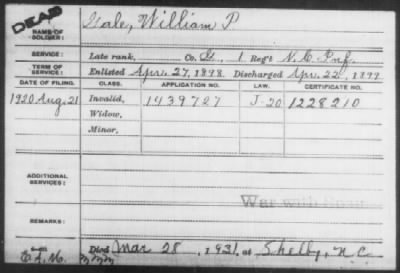 DEAD
NAME OF SOLDIER: Gale, William P
SERVICE: Late rank, Co. G, 1 Regt N.C. Inf.
TERM OF SERVICE: Enlisted Apr. 27, 1898. Discharged Apr. 22, 1899
DATE OF FILING. CLASS. APPLICATION NO. LAW. CERTIFICATE NO.
1920 Aug. 21 Invalid, 1439727 J-20 1228210
Widow,
Minor,
ADDITIONAL SERVICES:
War with Spain
REMARKS:
Died Mar 28, 1931, at Shelby, N.C.